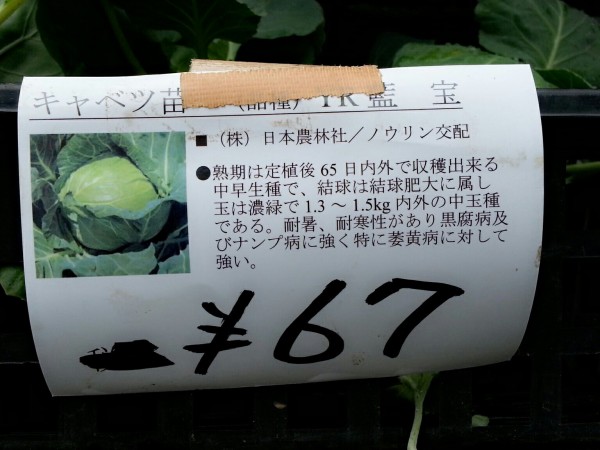 キャベツ苗 (品種) YR藍 宝
■ (株) 日本農林社／ノウリン交配
●熟期は定植後 65 日内外で収穫出来る
中早生種で、結球は結球肥大に属し
玉は濃緑で 1.3 ～ 1.5kg 内外の中玉種
である。耐暑、耐寒性があり黒腐病及
びナンプ病に強く特に萎黄病に対して
強い。
¥67